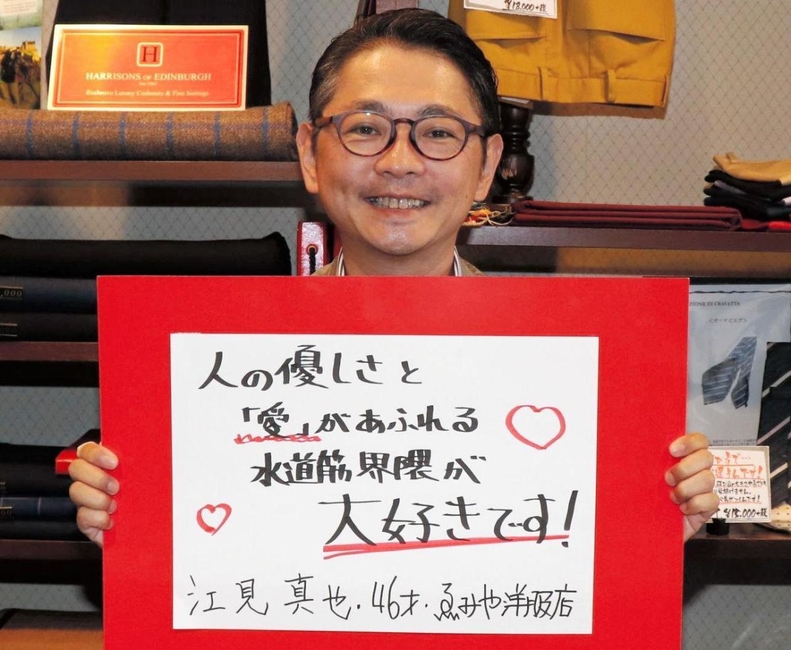 ¥18,000+税
H
HARRISONS OF EDINBURGH
Exclusive Luxury Cashmere & Fine Suitings
人の優しさと
「愛」があふれる
水道筋界隈が
大好きです!
江見 真也・46才・ゑみや洋服店
,000
¥18,000+税